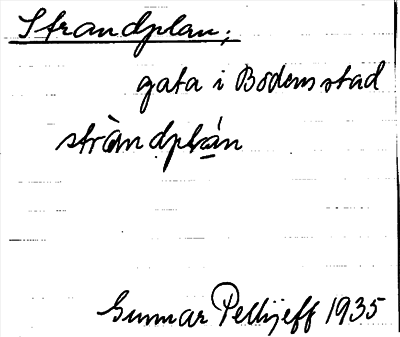 Strandplan;
gata i Bodens stad
stràndplán
Gunnar Pellijeff 1935